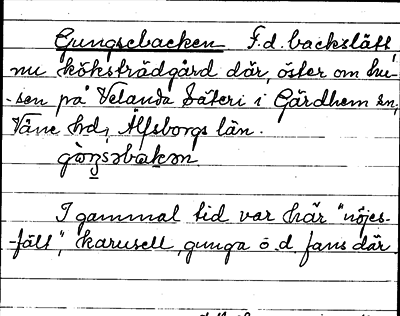 Gungsebacken F.d. backslätt
nu köksträdgård där, öster om hu-
-sen på Velanda Säteri i Gärdhem sn,
Väne hd, Älfsborgs län.
I gammal tid var här "nöjes-
-fält", karusell, gunga o.d. fans där.